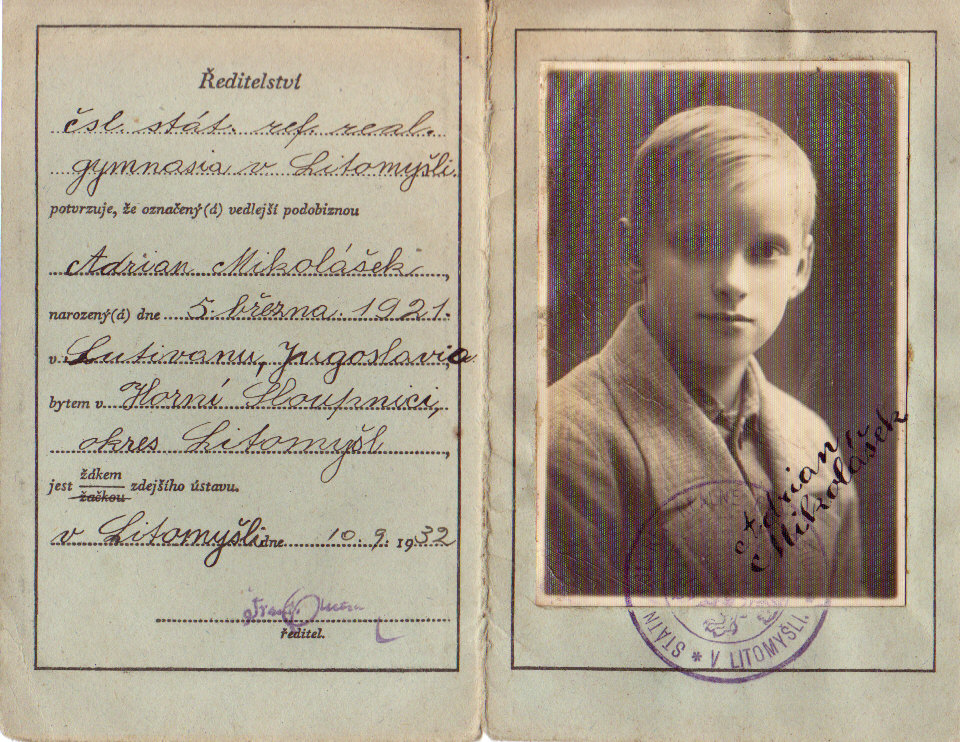 Ředitelství
čsl. stát. ref. real.
gymnasia v Litomyšli.
potvrzuje, že označený(á) vedlejší podobiznou
Adrian Mikolášek,
narozený(á) dne 5. března 1921.
v Lutivanu, Jugoslavia
bytem v Horní Sloupnici,
okres Litomyšl,
jest žákem
žačkou zdejšího ústavu.
v Litomyšli dne 10. 9. 1932
ředitel.
Adrian
Mikolášek
STÁTN
* V LITOMYŠLI.